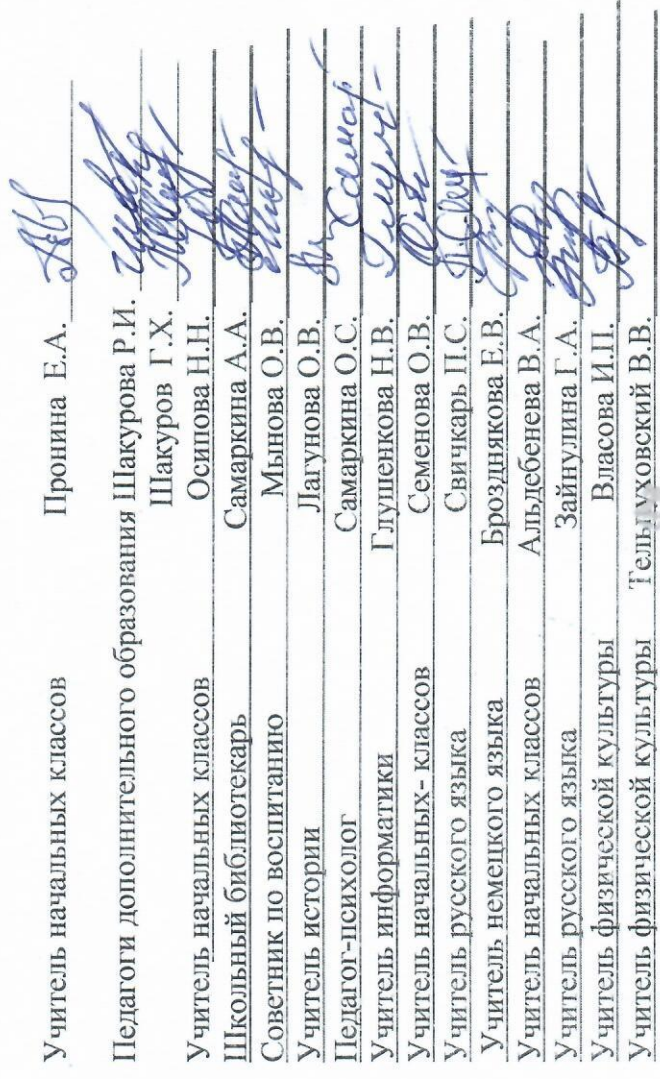 Учитель начальных классов Пронина Е.А.
Педагоги дополнительного образования Шакурова Р.И.
Шакуров Г.Х.
Учитель начальных классов Осипова Н.Н.
Школьный библиотекарь Самаркина А.А.
Советник по воспитанию Мынова О.В.
Учитель истории Лагунова О.В.
Педагог-психолог Самаркина О.С.
Учитель информатики Глушенкова Н.В.
Учитель начальных- классов Семенова О.В.
Учитель русского языка Свичкарь П.С.
Учитель немецкого языка Брозднякова Е.В.
Учитель начальных классов Альдебенева В.А.
Учитель русского языка Зайнулина Г.А.
Учитель физической культуры Власова И.П.
Учитель физической культуры В.В.